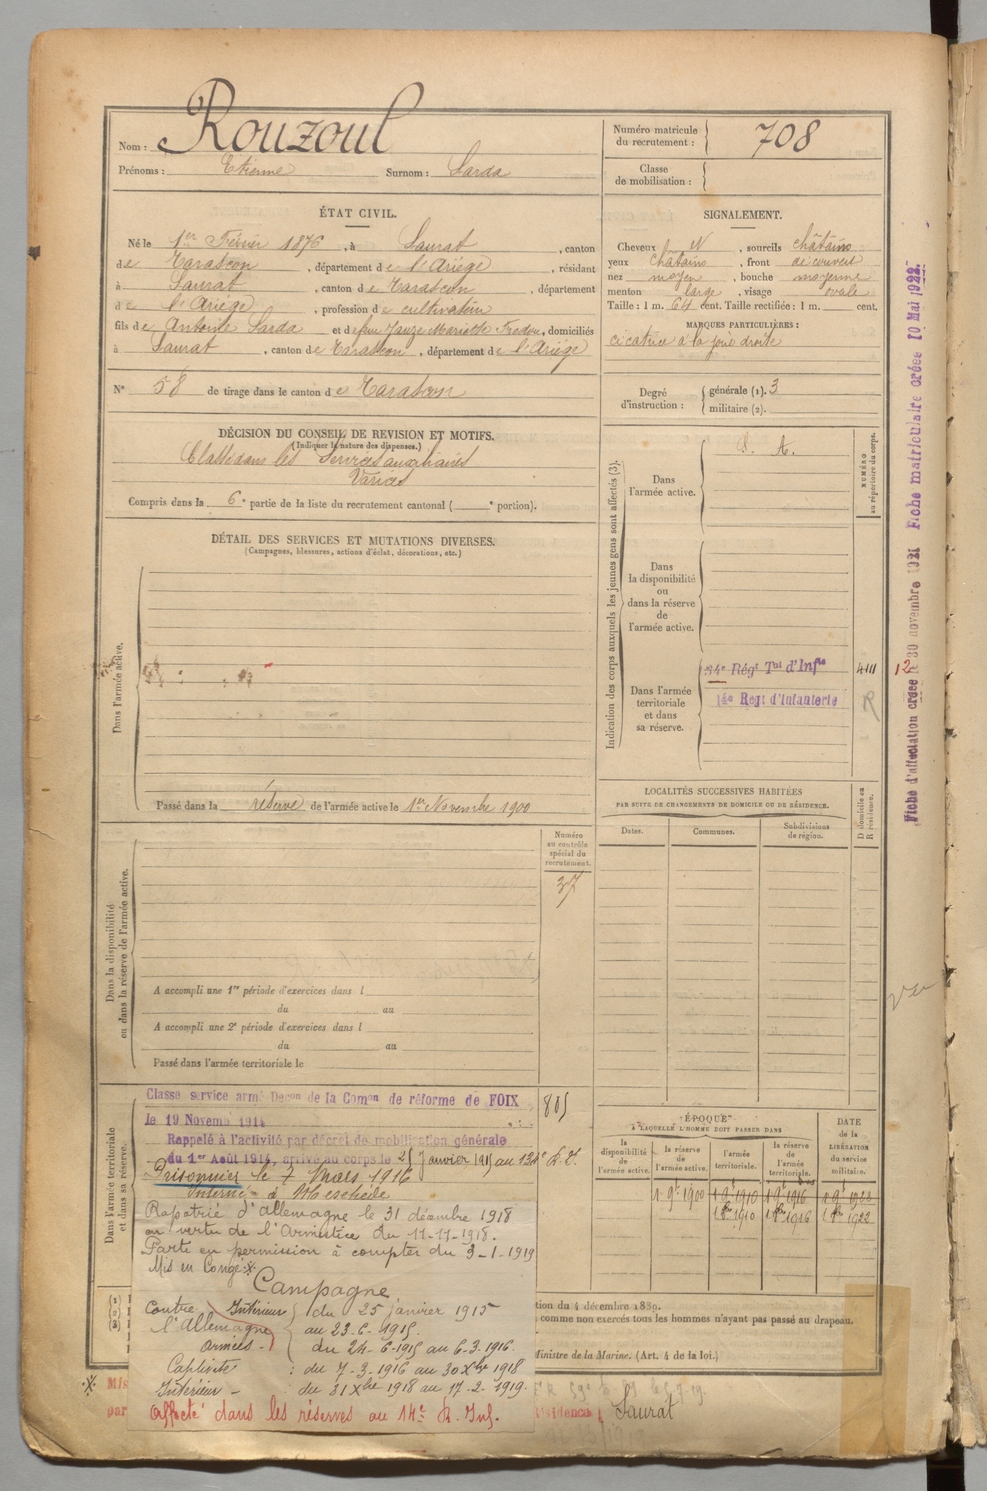 Nom : Rouzoul
Prénoms : Etienne Surnom : Sarda
Numéro matricule
du recrutement : 708
Classe
de mobilisation :
ÉTAT CIVIL.
Né le 1er Février 1876, à Saurat, canton
de Tarascon, département de l'Ariège, résidant
à Saurat, canton de Tarascon, département
de l'Ariège, profession de cultivateur
fils de Antoine Sarda et de feue Jauze Mariette Fredou, domiciliés
à Saurat, canton de Tarascon, département de l'Ariège
N° 58 de tirage dans le canton de Tarascon
SIGNALEMENT.
Cheveux N, sourcils châtains
yeux châtains, front découvert
nez moyen, bouche moyenne
menton large, visage ovale
Taille : 1 m. 64 cent. Taille rectifiée : 1 m. cent.
MARQUES PARTICULIÈRES :
cicatrice à la joue droite
Degré
d'instruction :
générale (1). 3
militaire (2).
DÉCISION DU CONSEIL DE REVISION ET MOTIFS.
(Indiquer la nature des dispenses.)
Classé dans les Services auxiliaires
Varices
Compris dans la 6e partie de la liste du recrutement cantonal ( e portion).
DÉTAIL DES SERVICES ET MUTATIONS DIVERSES.
(Campagnes, blessures, actions d'éclat, décorations, etc.)
Dans l'armée active.
Passé dans la réserve de l'armée active le 1er Novembre 1900
Indication des corps auxquels les jeunes gens sont affectés (3).
Dans
l'armée active.
S. A.
Dans
la disponibilité
ou
dans la réserve
de
l'armée active.
Dans l'armée
territoriale
et dans
sa réserve.
Régt Tal d'Infie
14e Régt d'Infanterie
NUMÉRO
au répertoire du corps.
12
R
Fiche d'affectation créée le 30 novembre 1921 Fiche matriculaire créée 10 Mai 1922.
LOCALITÉS SUCCESSIVES HABITÉES
PAR SUITE DE CHANGEMENTS DE DOMICILE OU DE RÉSIDENCE.
Dates. Communes. Subdivisions
de région.
D domicile ou
R résidence.
Numéro
au contrôle
spécial du
recrutement.
37
Dans la disponibilité
ou dans la réserve de l'armée active.
A accompli une 1re période d'exercices dans l
du au
A accompli une 2e période d'exercices dans l
du au
Passé dans l'armée territoriale le
vu
Dans l'armée territoriale
et dans sa réserve.
Classé service armé Decon de la Comon de réforme de FOIX
le 19 Novemb 1914
805
Rappelé à l'activité par décret de mobilisation générale
du 1er Août 1914, arrivé au corps le 25 Janvier 1915 au 134e R. T.
Prisonnier le 7 Mars 1916
Interné à Meschede
Rapatrié d'Allemagne le 31 décembre 1918
en vertu de l'Armistice du 11-11-1918.
Parti en permission à compter du 3-1-1919
Mis en Congé
Campagne
Contre
l'Allemagne
Intérieur du 25 janvier 1915
au 23-6-1915.
Armées - du 24-6-1915 au 6-3-1916.
Captivité : du 7-3-1916 au 30 Xbre 1918
Intérieur - du 31 Xbre 1918 au 17-2-1919.
Affecté dans les réserves au 14e R. Inf.
ÉPOQUE
À LAQUELLE L'HOMME DOIT PASSER DANS
la
disponibilité
de
l'armée active.
la réserve
de
l'armée active.
l'armée
territoriale.
la réserve
de
l'armée
territoriale.
DATE
de la
LIBÉRATION
du service
militaire.
1 9bre 1900 1 9bre 1910 1 9bre 1916 1 9bre 1922
1 8bre 1910 1 8bre 1916 1 8bre 1922
tion du 4 décembre 1889.
comme non exercés tous les hommes n'ayant pas passé au drapeau.
Ministre de la Marine. (Art. 4 de la loi.)
Mis
par
résidence Saurat